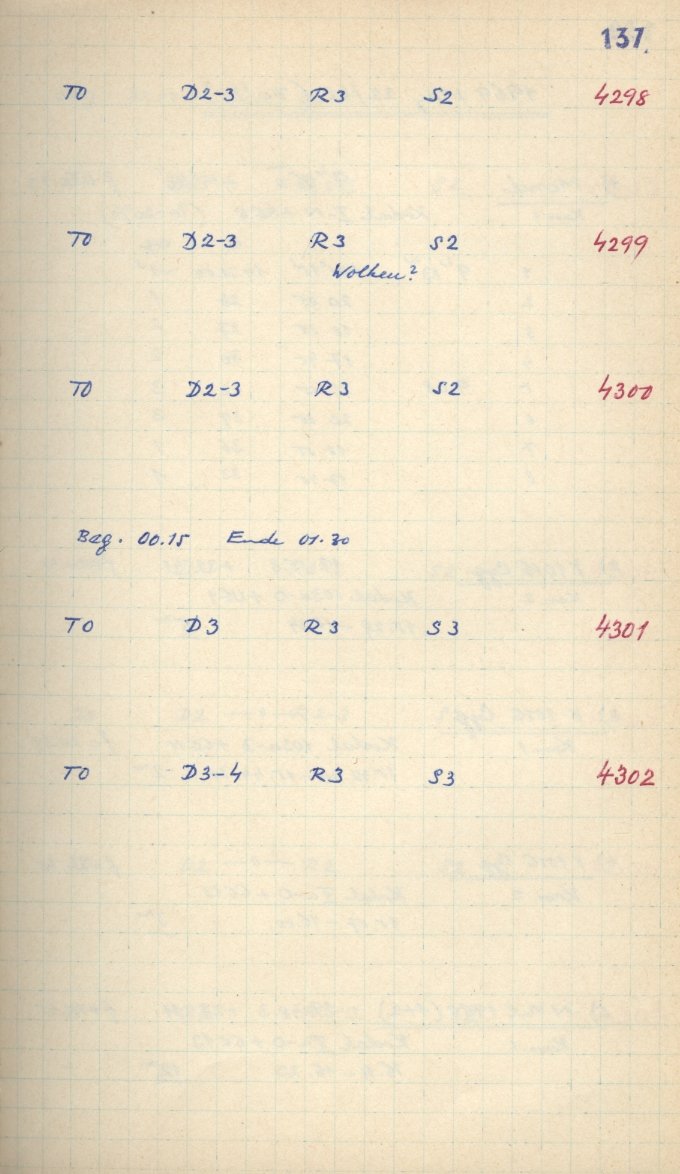 137.
TO D2-3 R3 S2 4298
TO D2-3 R3 S2 4299
Wolken?
TO D2-3 R3 S2 4300
Beg. 00.15 Ende 01.30
TO D3 R3 S3 4301
TO D3-4 R3 S3 4302